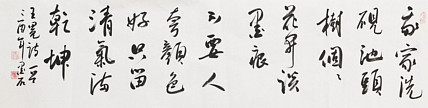 我家洗
硯池頭
樹個〻
花開淡
墨痕
不要人
夸顏色
好只留
清氣滿
乾坤
王冕詩一首
酉年